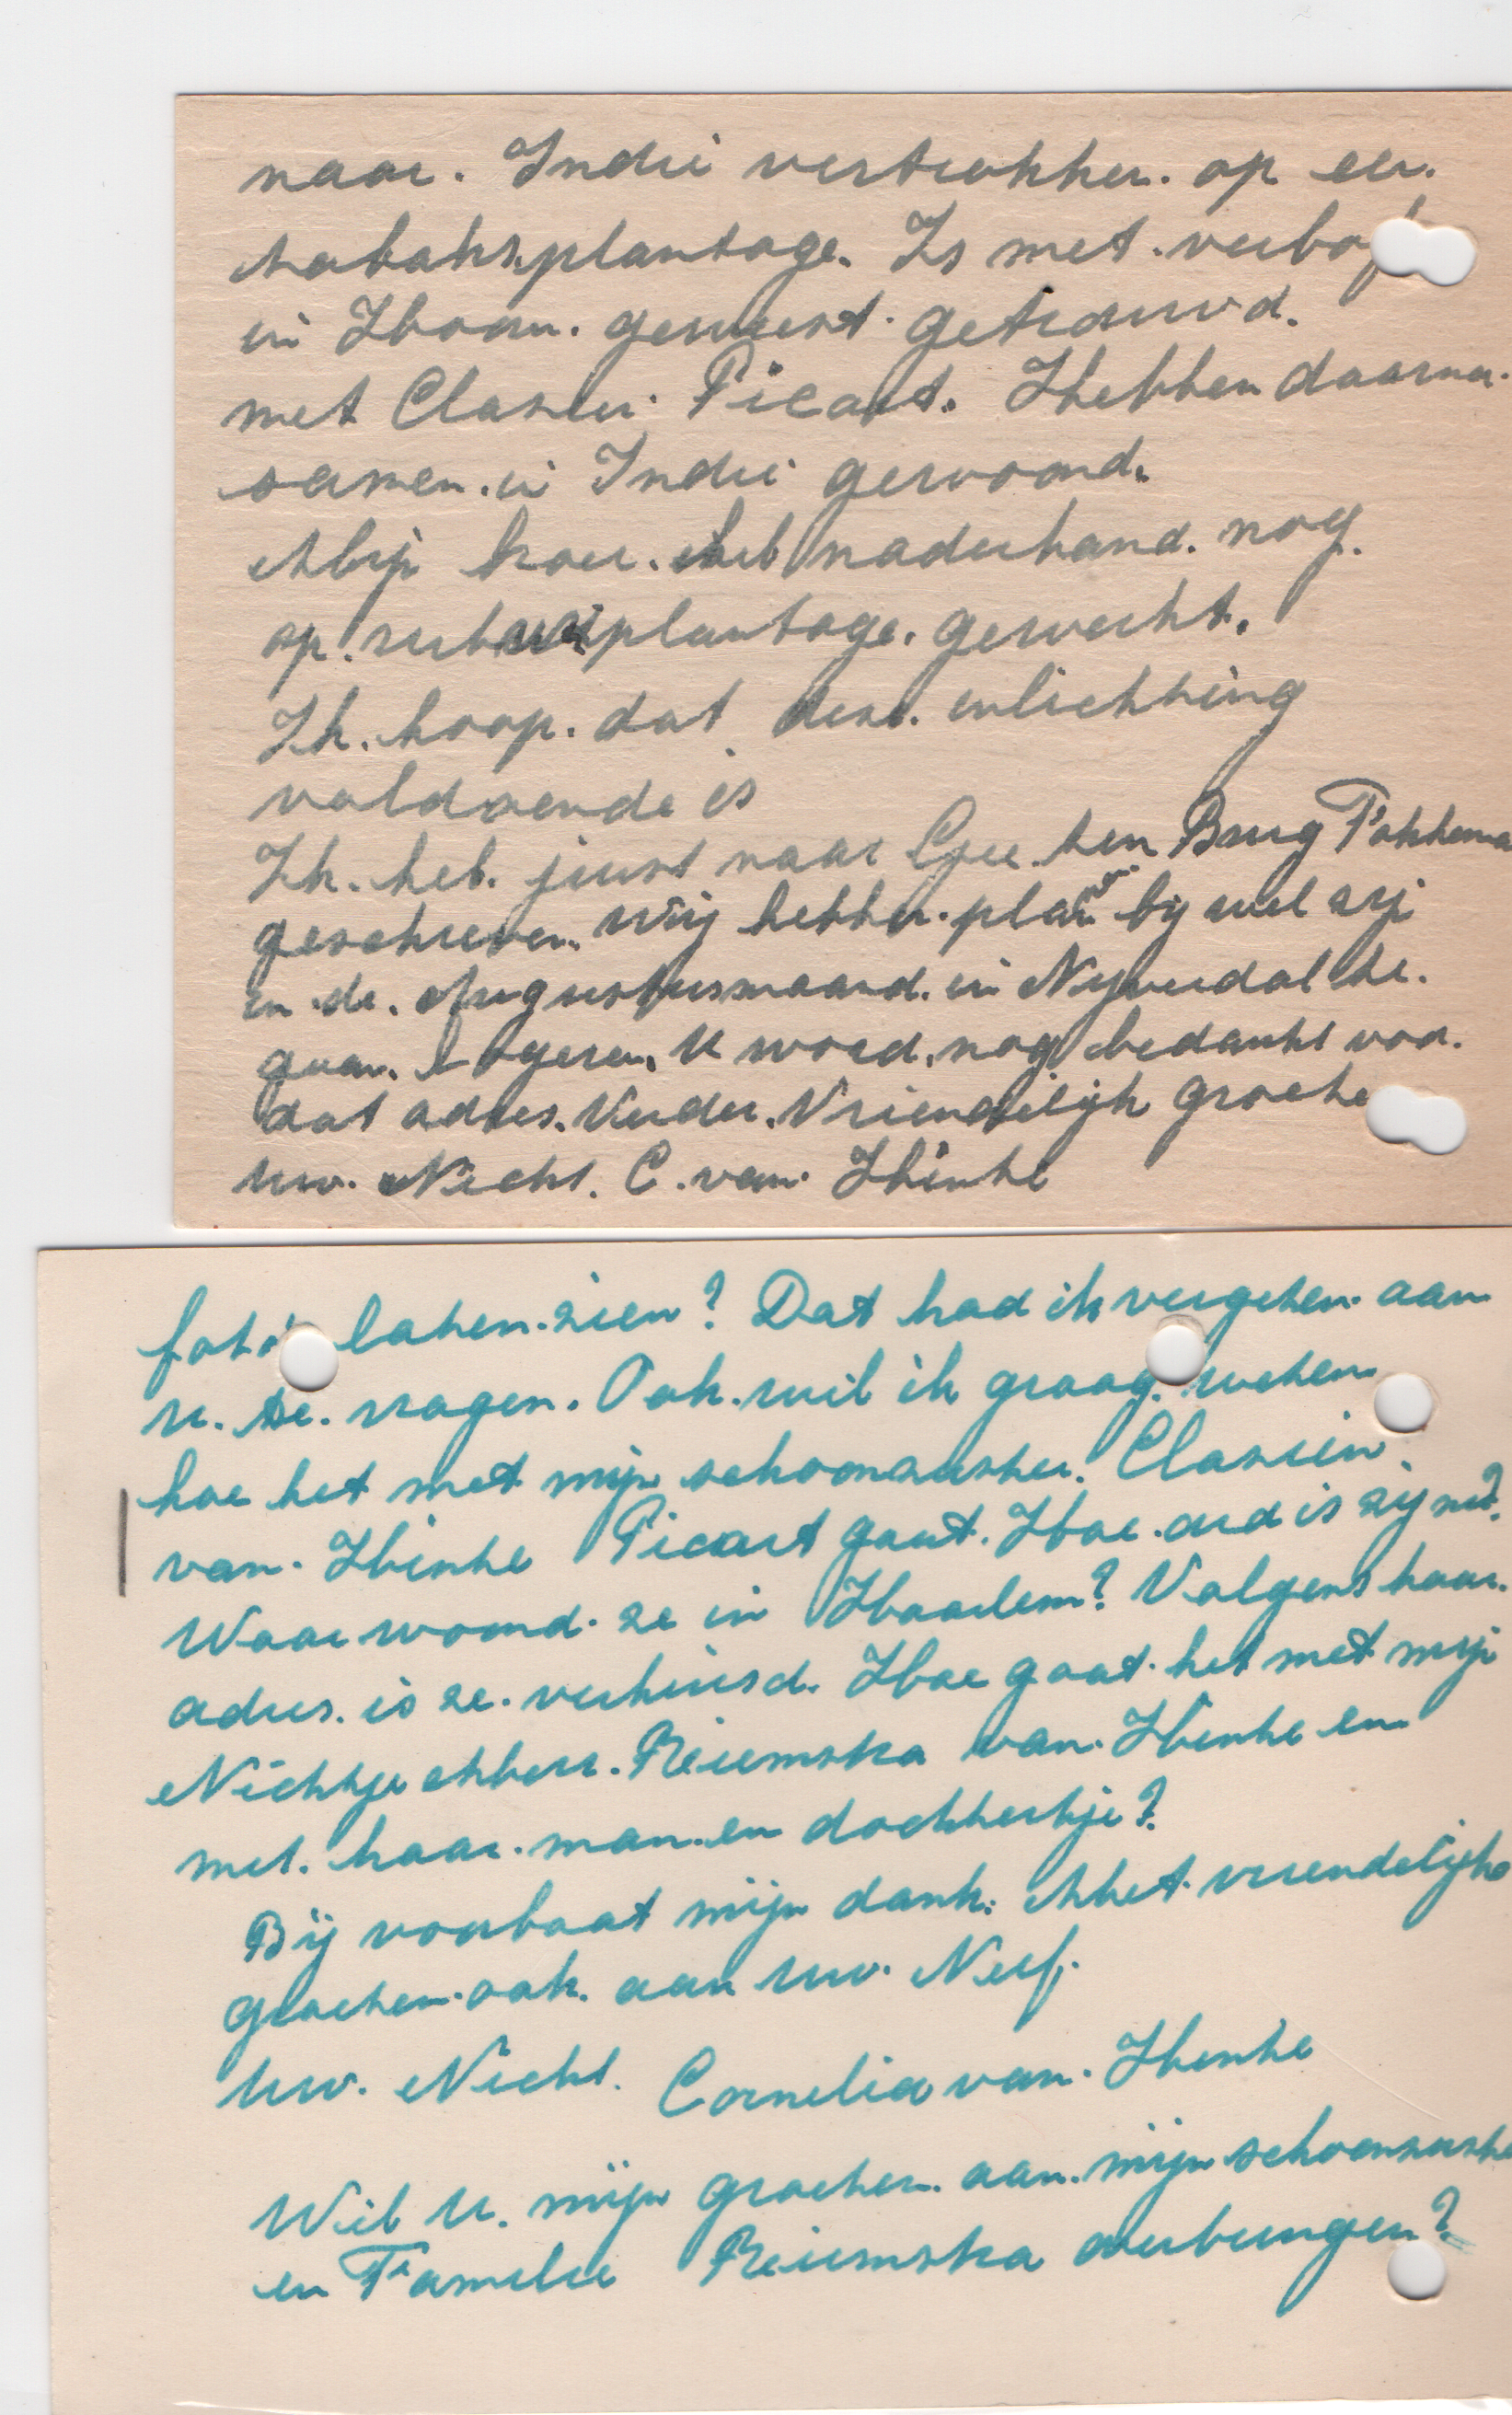 naar. Indië vertrokken. op een.
tabaksplantage. Is met. verlof
in Holland. geweest. getrouwd.
met Clasien. Picart. Hebben daarna.
samen. in Indië gewoond.
Mijn broer. heb naderhand. nog.
op. rubberplantage. gewerkt.
Ik. hoop. dat deze. inlichting
voldoende is
Ik. heb. juist naar Gee ten Brug Fokkema
geschreven. Wij hebben. plan om bij wel zij
in de. Augustusmaand. in Nijverdal te.
gaan. Logeren. U word. nog bedankt voor.
dat adres. Verder. Vriendelijk groeten
uw. Nicht. C. van. Hinte
foto's laten. zien? Dat had ik vergeten. aan
u. te. vragen. Ook. wil ik graag. weten.
hoe het met mijn schoonzuster. Clasien.
van. Hinte Picart gaat. Hoe. oud is zij nu?
Waar woond. ze in Haarlem? Volgens haar.
adres. is ze. verhuisd. Hoe gaat. het met mijn
Nichtje Riemska van. Hinte en
met. haar. man. en dochtertje?
Bij voorbaat mijn dank. Met. vriendelijke
groeten. ook. aan uw. Neef.
Uw. Nicht. Cornelia van. Hinte
Wil U. mijn groeten. aan. mijn schoonzuster
en Familie Riemska overbrengen?